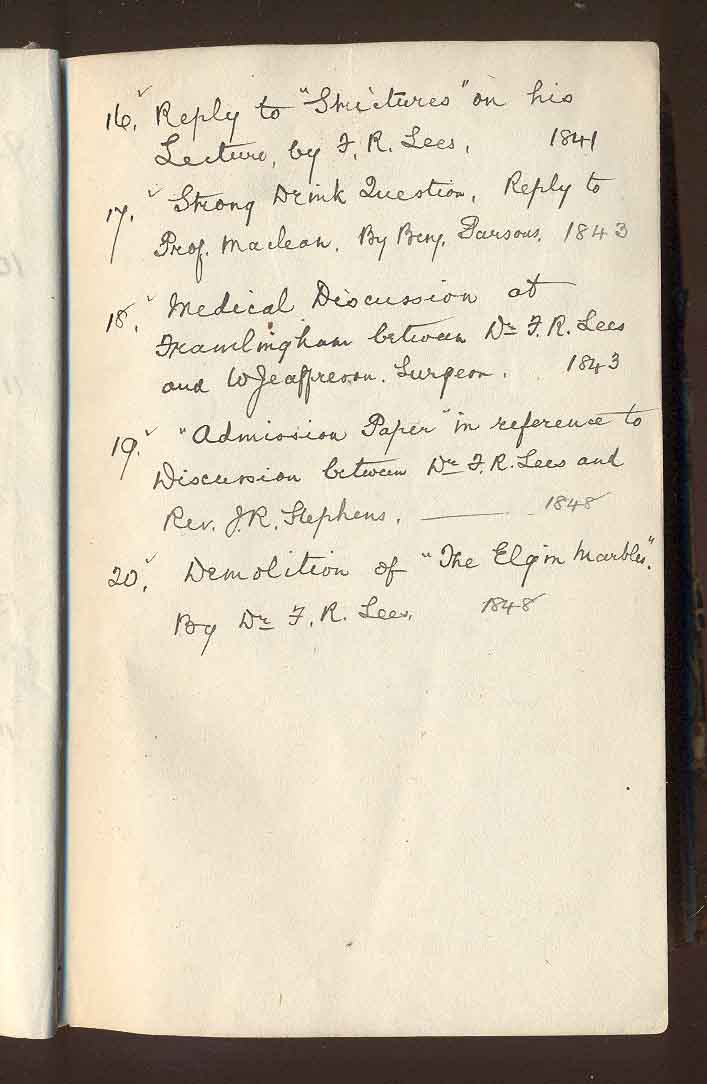 16. Reply to "Strictures" on his
Lecture, by F. R. Lees. 1841
17. Strong Drink Question. Reply to
Prof. Maclean. By Benj. Parsons. 1843
18. Medical Discussion at
Framlingham between Dr F. R. Lees
and W Jeaffreson. Surgeon. 1843
19. "Admission Paper" in reference to
Discussion between Dr F. R. Lees and
Rev. J. R. Stephens. — 1848
20. Demolition of "The Elgin Marbles".
By Dr F. R. Lees. 1848